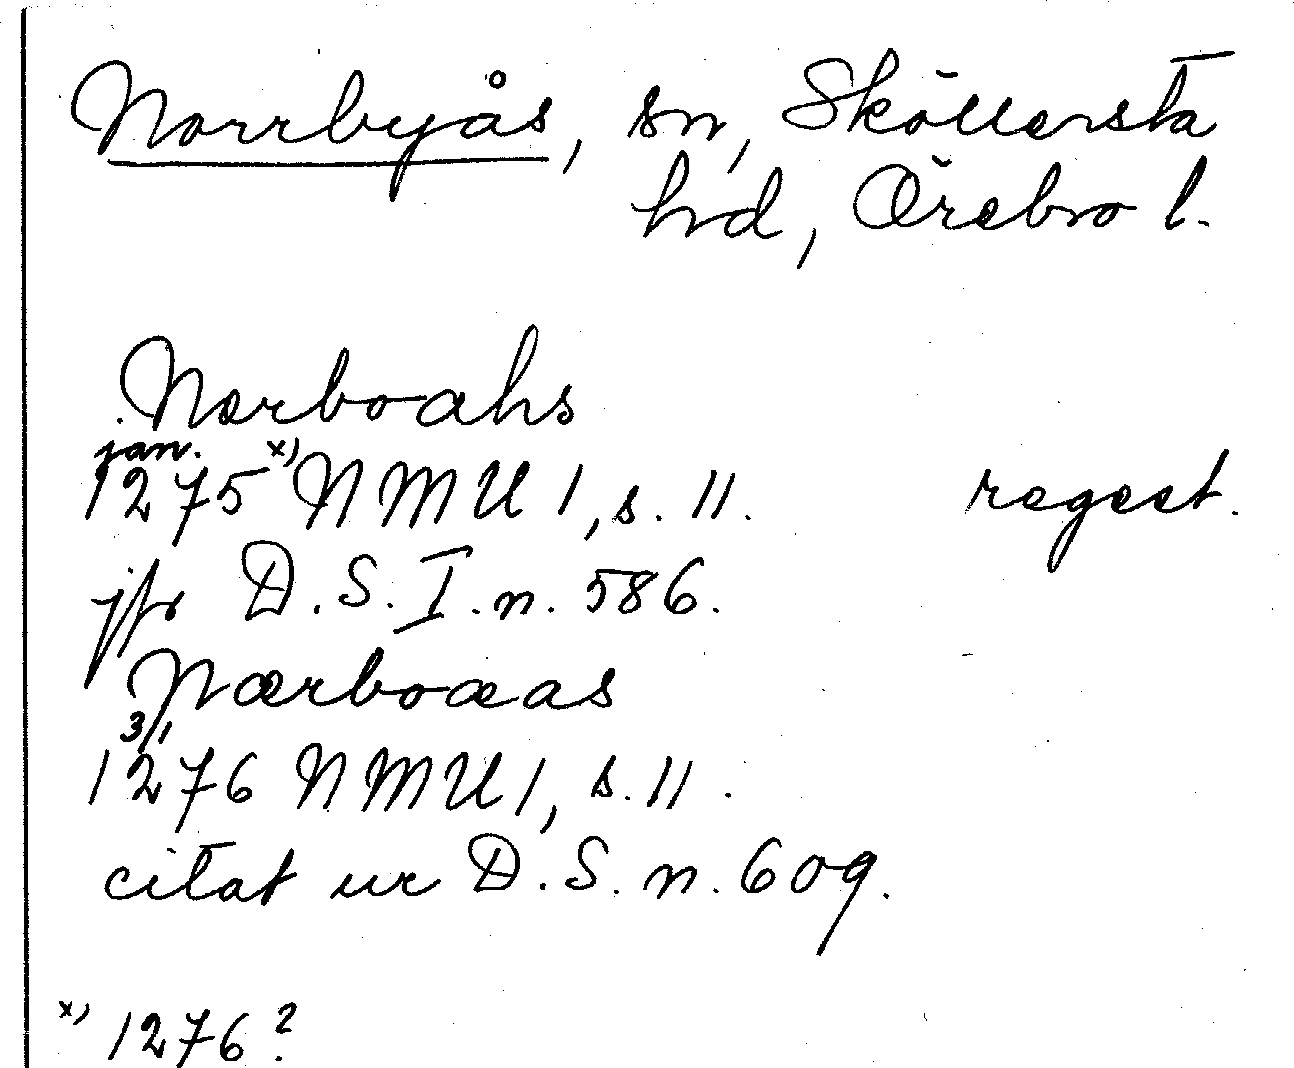 Norrbyås, sn, Sköllersta
hd, Örebro l.
Nærboahs
jan.
1275 x) NMU 1, s. 11. regest.
jfr D.S.I.n. 586.
Nærboæas
3/1
1276 NMU 1, s. 11.
citat ur D.S. n. 609.
x) 1276?